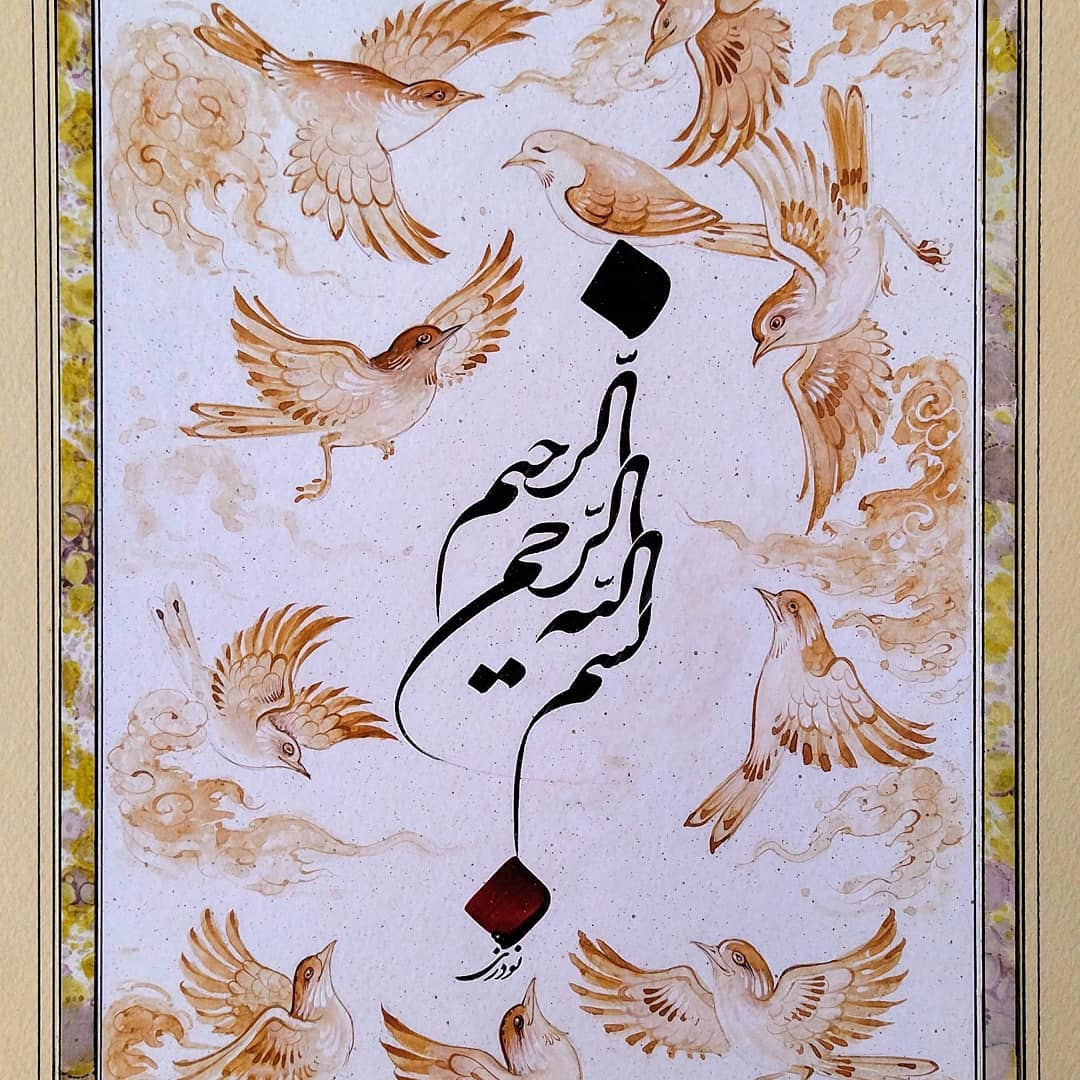 بسم
اللّه
الرّحمن
الرّحیم
نوذری